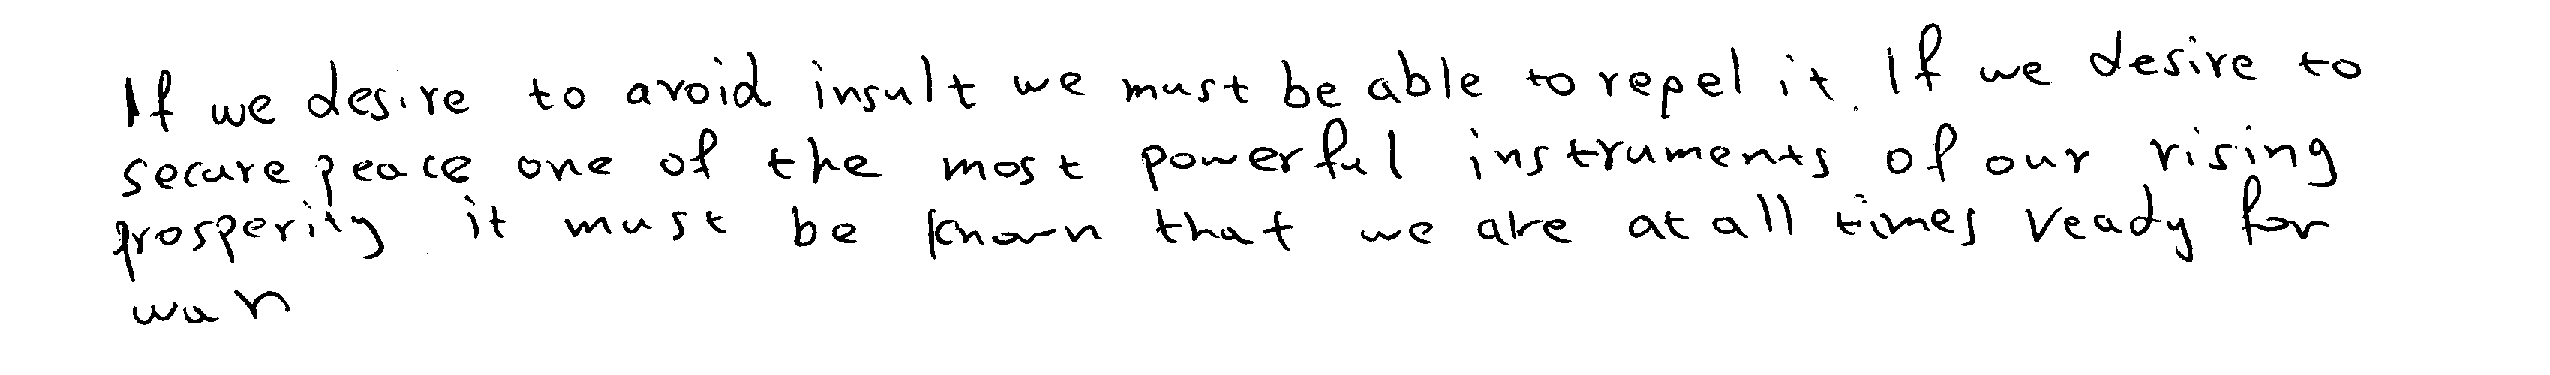 If we desire to avoid insult we must be able to repel it. If we desire to
secure peace one of the most powerful instruments of our rising
prosperity it must be known that we are at all times ready for
war